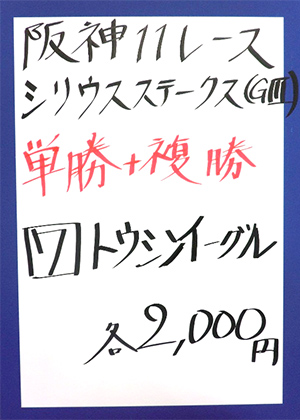 阪神11レース
シリウスステークス(GⅢ)
単勝+複勝
7 トウシンイーグル
各2,000円